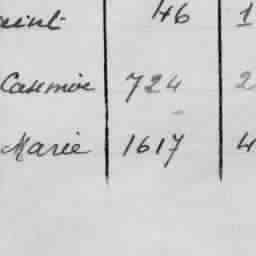 aint 46 1
Casimir 724 2
Marie 1617 4